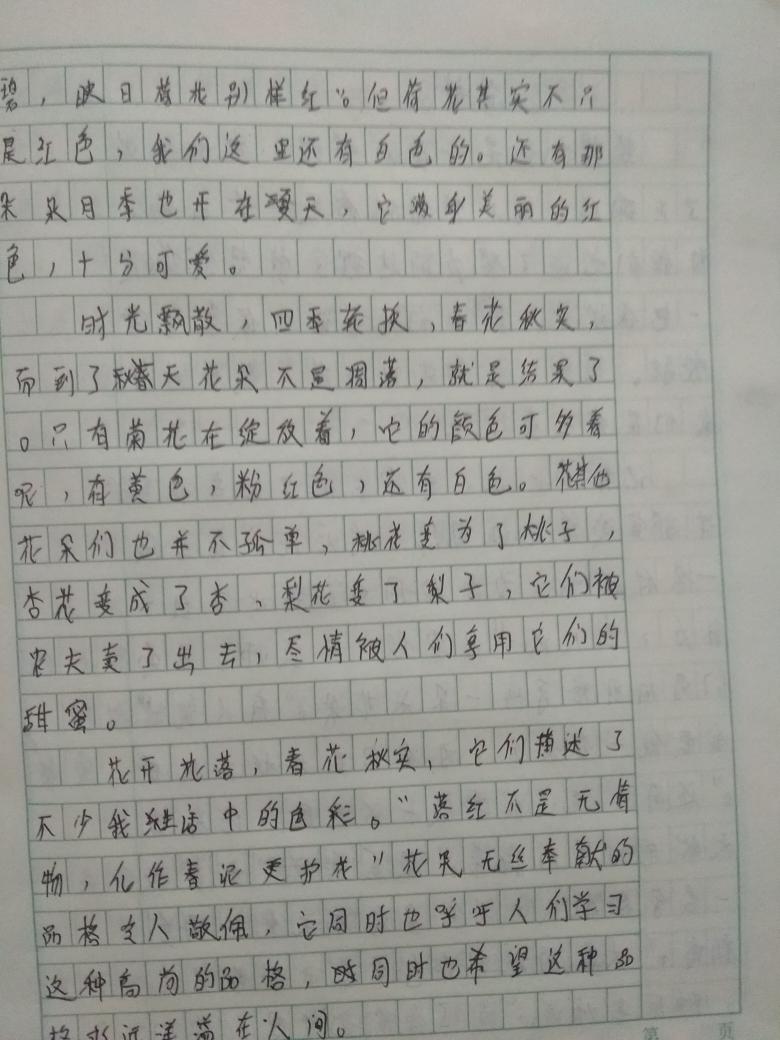 碧，映日荷花别样红"。但荷花其实不只
是红色，我们这里还有白色的。还有那
朵朵月季也开在夏天，它满身美丽的红
色，十分可爱。
时光飘散，四季轮换，春花秋实，
而到了秋天花朵不是凋落，就是结果了
。只有菊花在绽放着，它的颜色可多着
呢，有黄色，粉红色，还有白色。其他
花朵们也并不孤单，桃花变为了桃子，
杏花变成了杏，梨花变了梨子，它们被
农夫卖了出去，尽情被人们享用它们的
甜蜜。
花开花落，春花秋实，它们描述了
不少我生活中的色彩。"落红不是无情
物，化作春泥更护花"花朵无丝奉献的
品格令人敬佩，它同时也呼吁人们学习
这种高尚的品格，同时也希望这种品
格永远洋溢在人间。
第 页